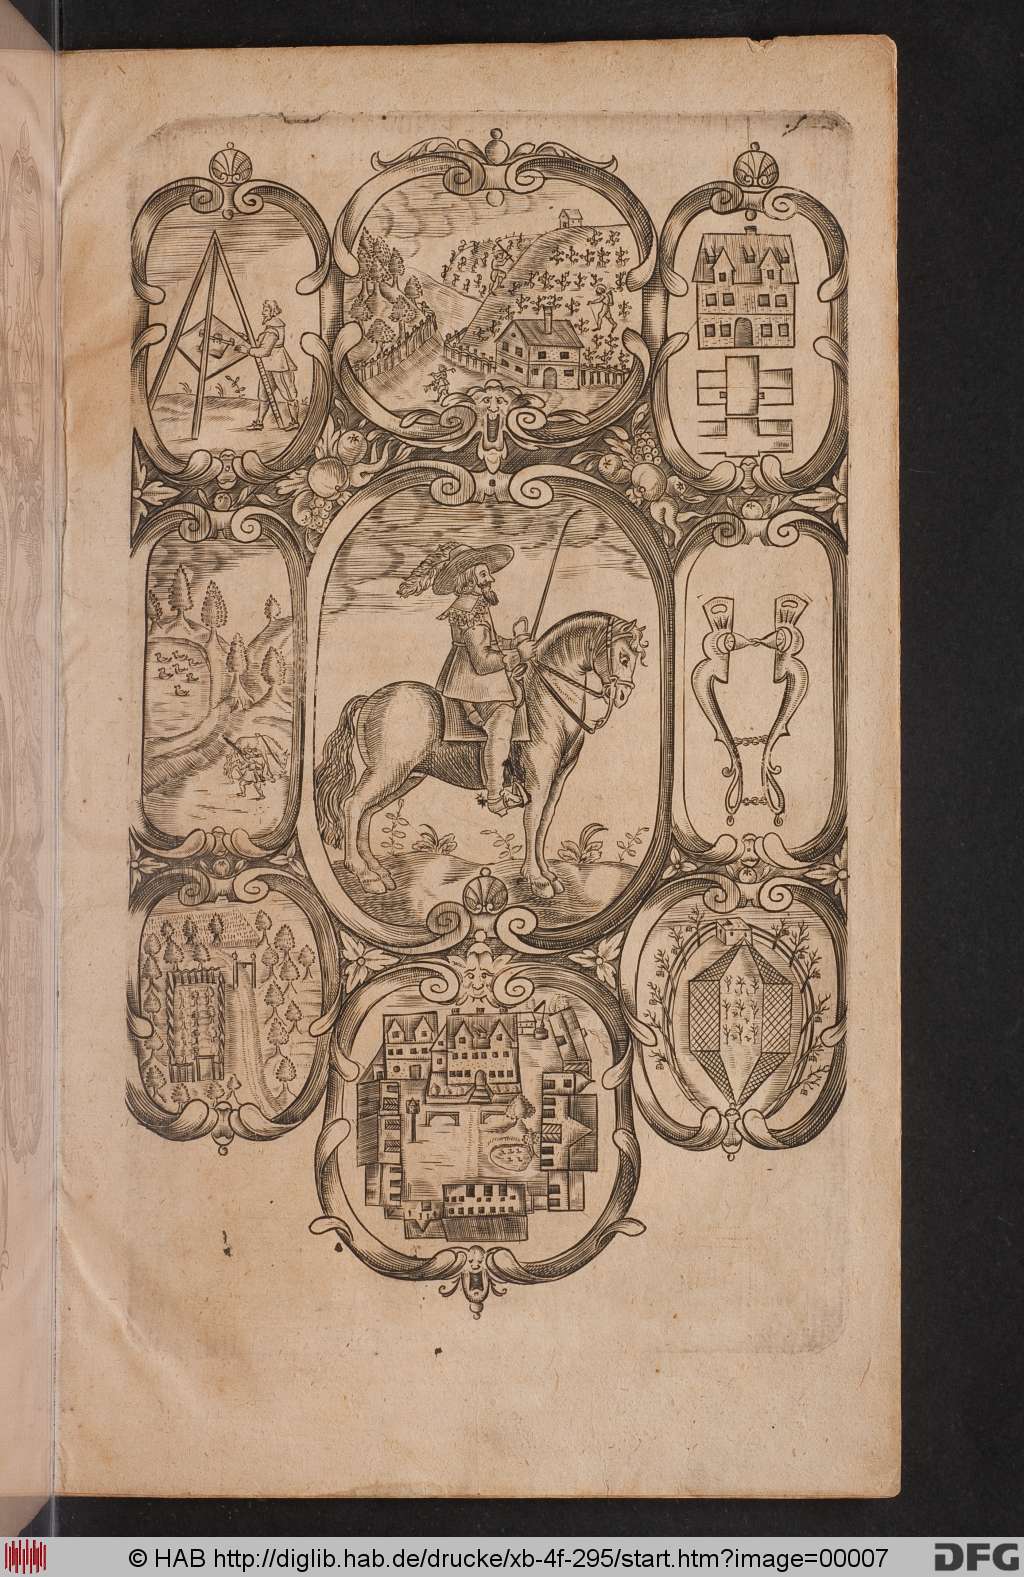 © HAB http://diglib.hab.de/drucke/xb-4f-295/start.htm?image=00007
DFG